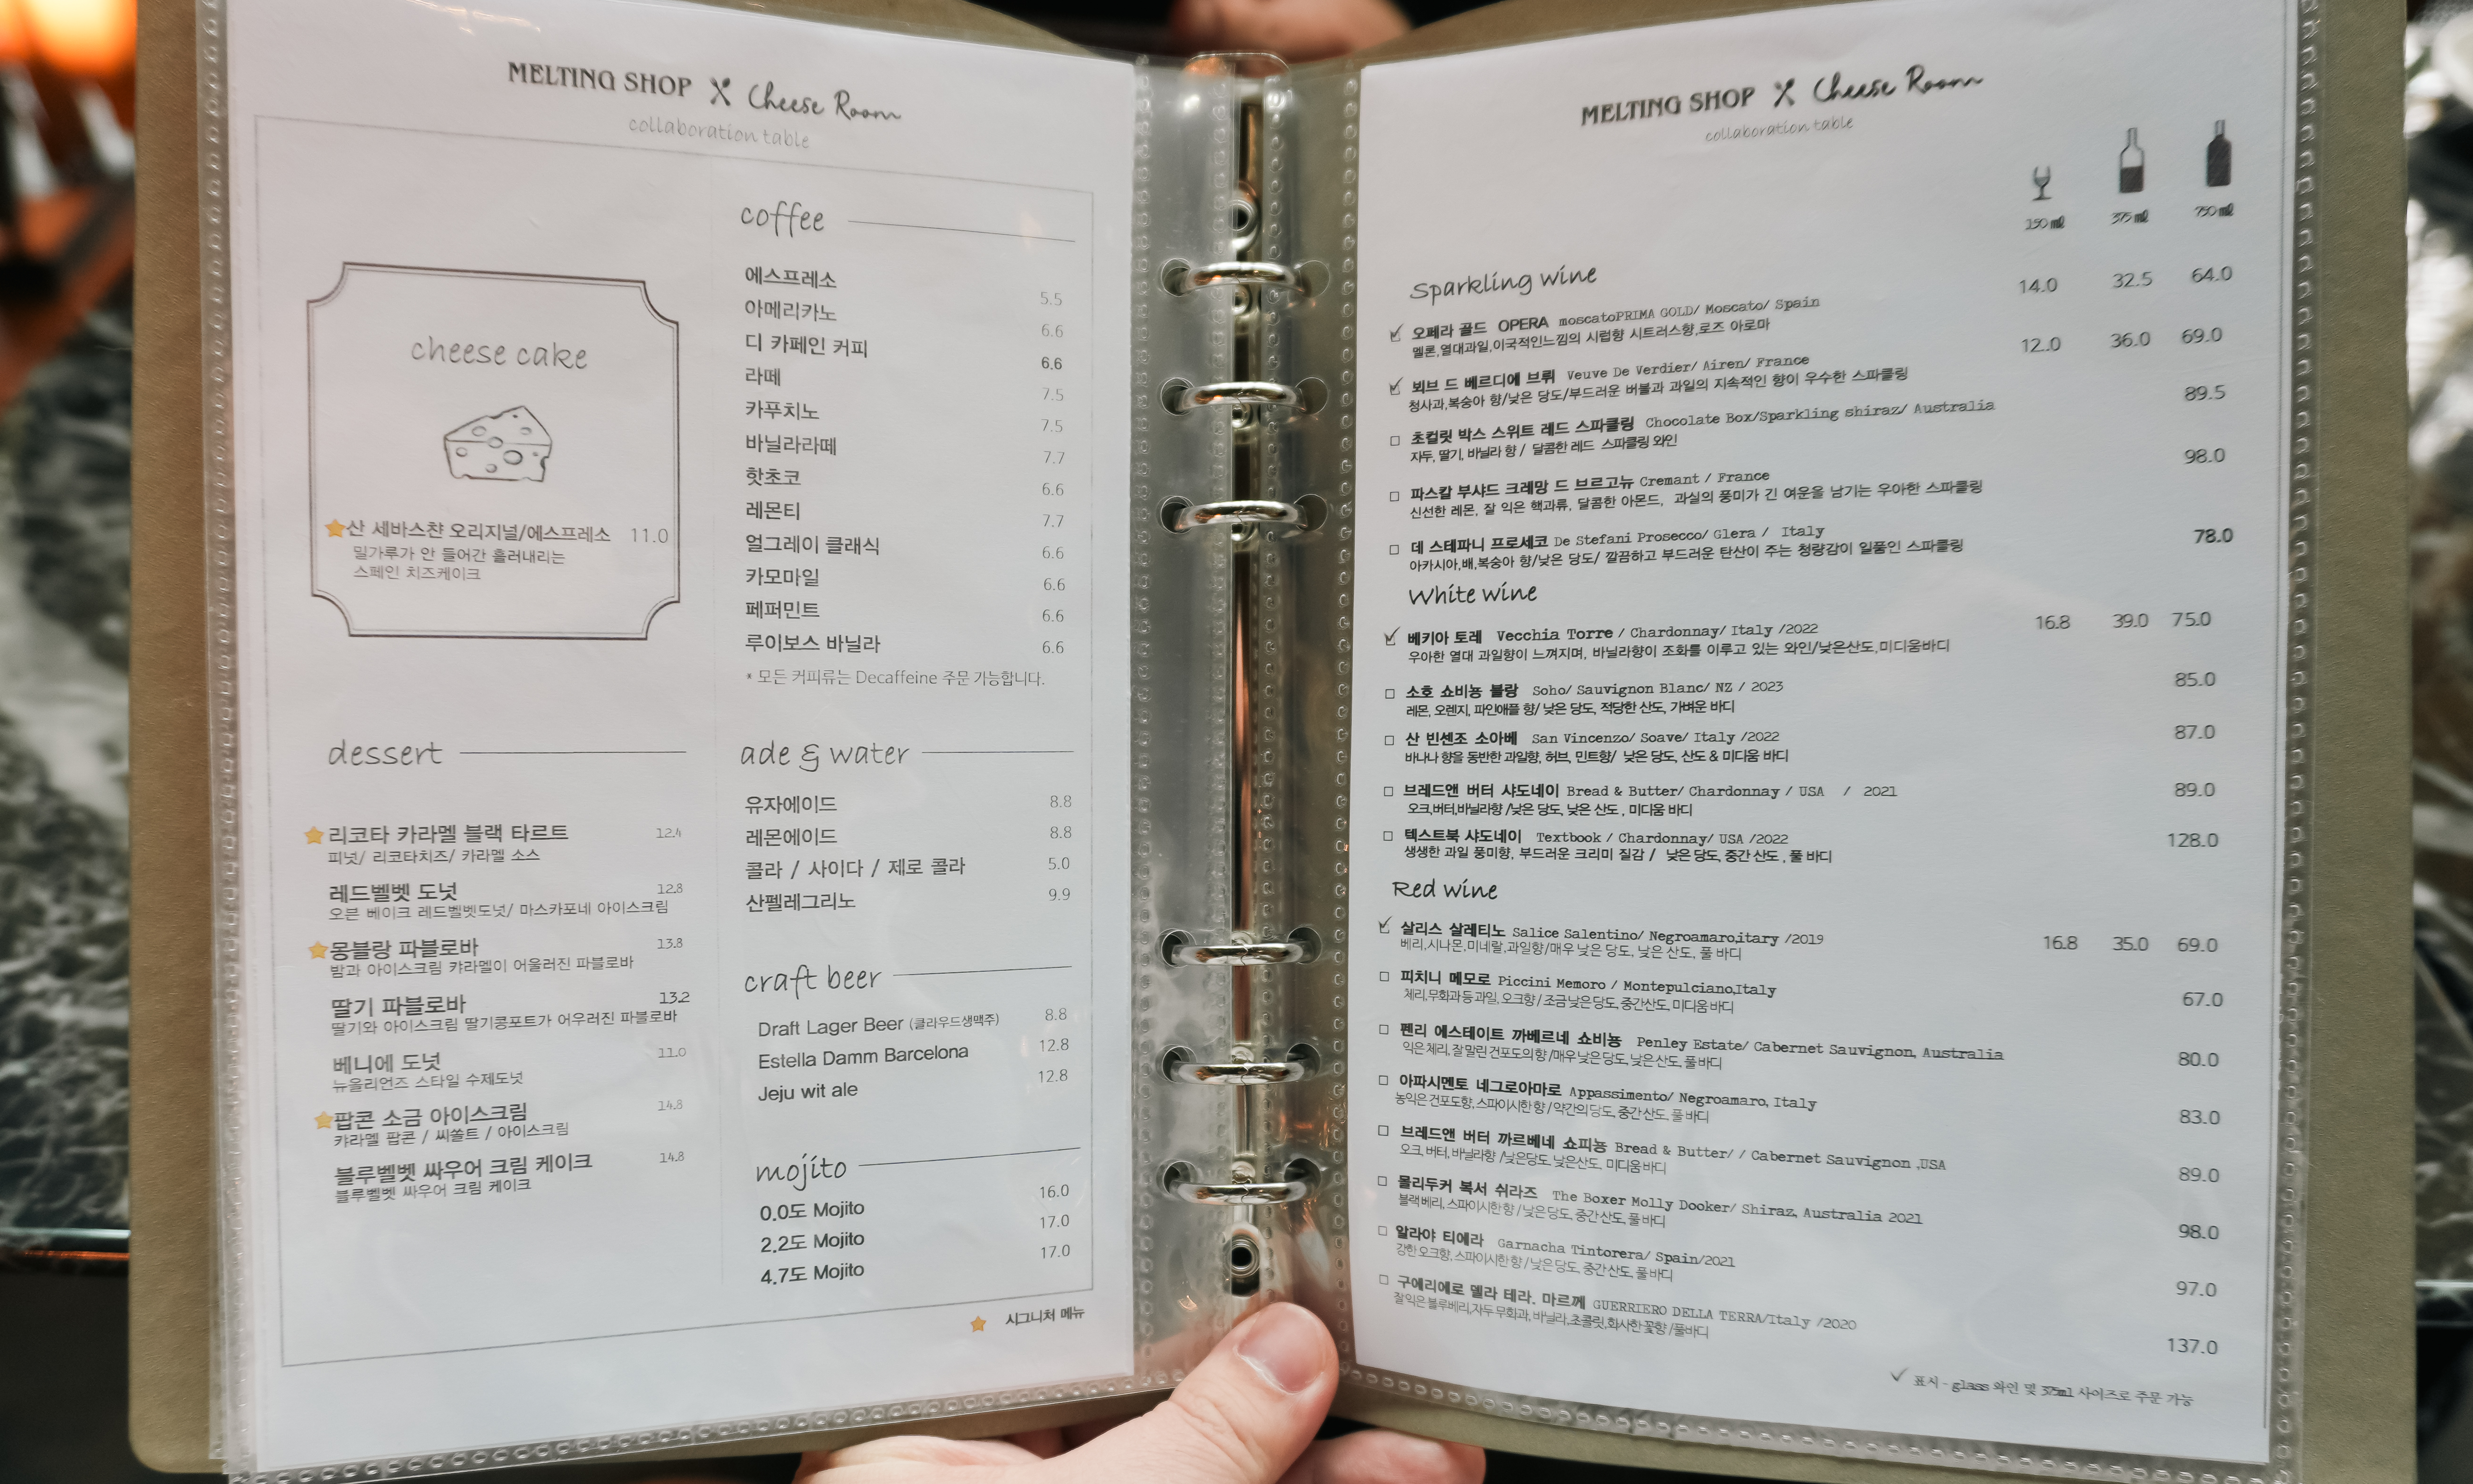 MELTING SHOP Cheese Room
collaboration table
cheese cake
산 세바스챤 오리지널/에스프레소 11.0
밀가루가 안 들어간 흘러내리는
스페인 치즈케이크
dessert
리코타 카라멜 블랙 타르트 12.4
피넛/ 리코타치즈/ 카라멜 소스
레드벨벳 도넛 12.8
오븐 베이크 레드벨벳도넛/ 마스카포네 아이스크림
몽블랑 파블로바 13.8
밤과 아이스크림 캬라멜이 어울러진 파블로바
딸기 파블로바 13.2
딸기와 아이스크림 딸기콩포트가 어우러진 파블로바
베니에 도넛 11.0
뉴올리언즈 스타일 수제도넛
팝콘 소금 아이스크림 14.8
캬라멜 팝콘 / 씨쏠트 / 아이스크림
블루벨벳 싸우어 크림 케이크 14.8
블루벨벳 싸우어 크림 케이크
coffee
에스프레소 5.5
아메리카노 6.6
디 카페인 커피 6.6
라떼 7.5
카푸치노 7.5
바닐라라떼 7.7
핫초코 6.6
레몬티 7.7
얼그레이 클래식 6.6
카모마일 6.6
페퍼민트 6.6
루이보스 바닐라 6.6
* 모든 커피류는 Decaffeine 주문 가능합니다.
ade & water
유자에이드 8.8
레몬에이드 8.8
콜라 / 사이다 / 제로 콜라 5.0
산펠레그리노 9.9
craft beer
Draft Lager Beer (클라우드생맥주) 8.8
Estella Damm Barcelona 12.8
Jeju wit ale 12.8
mojito
0.0도 Mojito 16.0
2.2도 Mojito 17.0
4.7도 Mojito 17.0
시그니처 메뉴
MELTING SHOP Cheese Room
collaboration table
150 ㎖ 375 ㎖ 750 ㎖
Sparkling wine
오페라 골드 OPERA moscatoPRIMA GOLD/ Moscato/ Spain 14.0 32.5 64.0
멜론,열대과일,이국적인느낌의 시럽향 시트러스향,로즈 아로마
뵈브 드 베르디에 브뤼 Veuve De Verdier/ Airen/ France 12.0 36.0 69.0
청사과,복숭아 향/낮은 당도/부드러운 버블과 과일의 지속적인 향이 우수한 스파클링
초컬릿 박스 스위트 레드 스파클링 Chocolate Box/Sparkling shiraz/ Australia 89.5
자두, 딸기, 바닐라 향 / 달콤한 레드 스파클링 와인
파스칼 부샤드 크레망 드 브르고뉴 Cremant / France 98.0
신선한 레몬, 잘 익은 핵과류, 달콤한 아몬드, 과실의 풍미가 긴 여운을 남기는 우아한 스파클링
데 스테파니 프로세코 De Stefani Prosecco/ Glera / Italy 78.0
아카시아,배,복숭아 향/낮은 당도/ 깔끔하고 부드러운 탄산이 주는 청량감이 일품인 스파클링
White wine
베키아 토레 Vecchia Torre / Chardonnay/ Italy /2022 16.8 39.0 75.0
우아한 열대 과일향이 느껴지며, 바닐라향이 조화를 이루고 있는 와인/낮은산도,미디움바디
소호 쇼비뇽 블랑 Soho/ Sauvignon Blanc/ NZ / 2023 85.0
레몬, 오렌지, 파인애플 향/ 낮은 당도, 적당한 산도, 가벼운 바디
산 빈센조 소아베 San Vincenzo/ Soave/ Italy /2022 87.0
바나나 향을 동반한 과일향, 허브, 민트향/ 낮은 당도, 산도 & 미디움 바디
브레드앤 버터 샤도네이 Bread & Butter/ Chardonnay / USA / 2021 89.0
오크,버터,바닐라향 /낮은 당도, 낮은 산도 , 미디움 바디
텍스트북 샤도네이 Textbook / Chardonnay/ USA /2022 128.0
생생한 과일 풍미향, 부드러운 크리미 질감 / 낮은 당도, 중간 산도 , 풀 바디
Red wine
살리스 살레티노 Salice Salentino/ Negroamaro,itary /2019 16.8 35.0 69.0
베리,시나몬,미네랄,과일향/매우 낮은 당도, 낮은 산도, 풀 바디
피치니 메모로 Piccini Memoro / Montepulciano,Italy 67.0
체리,무화과 등 과일, 오크향 / 조금 낮은 당도, 중간산도, 미디움 바디
펜리 에스테이트 까베르네 쇼비뇽 Penley Estate/ Cabernet Sauvignon, Australia 80.0
익은 체리, 잘 말린 건포도의 향 /매우 낮은 당도, 낮은 산도, 풀 바디
아파시멘토 네그로아마로 Appassimento/ Negroamaro, Italy 83.0
농익은 건포도향, 스파이시한 향 / 약간의 당도, 중간 산도, 풀 바디
브레드앤 버터 까르베네 쇼피뇽 Bread & Butter/ / Cabernet Sauvignon ,USA 89.0
오크, 버터, 바닐라향 /낮은당도, 낮은산도, 미디움 바디
몰리두커 복서 쉬라즈 The Boxer Molly Dooker/ Shiraz, Australia 2021 98.0
블랙 베리, 스파이시한 향 / 낮은 당도, 중간 산도, 풀 바디
알라야 티에라 Garnacha Tintorera/ Spain/2021 97.0
강한 오크향, 스파이시한 향 / 낮은 당도, 중간 산도, 풀 바디
구에리에로 델라 테라. 마르께 GUERRIERO DELLA TERRA/Italy /2020 137.0
잘 익은 블루베리,자두 무화과, 바닐라,초콜릿,화사한 꽃향 /풀바디
표시 - glass 와인 및 375ml 사이즈로 주문 가능